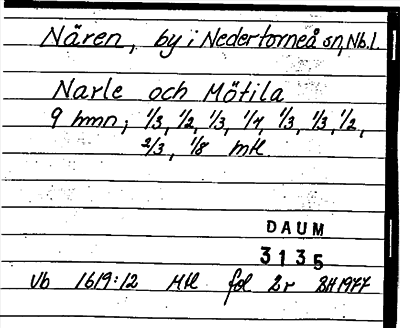 Nären, by i Nedertorneå sn, Nb.l.
Narle och Mötila
9 hmn; 1/3, 1/2, 1/3, 1/4, 1/3, 1/3, 1/2,
2/3, 1/8 mtl
DAUM
3135
Vb 1619:12 Mtl fol 2r BH 1977